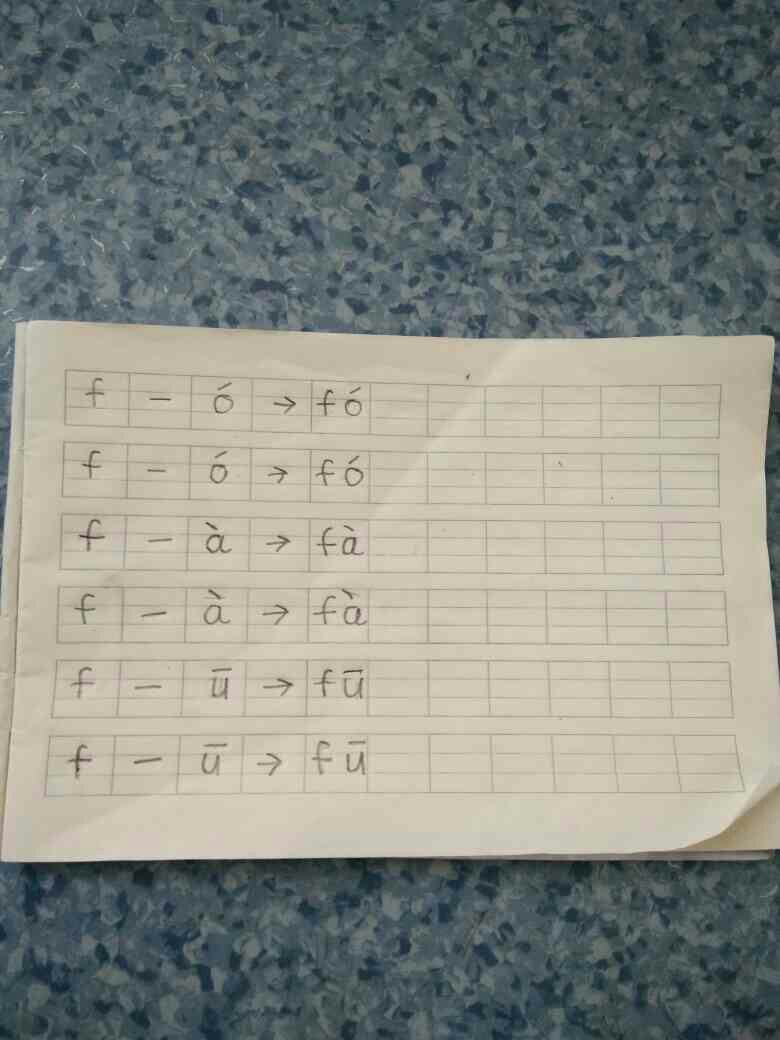 f - ó → fó
f - ó → fó
f - à → fà
f - à → fà
f - ū → fū
f - ū → fū